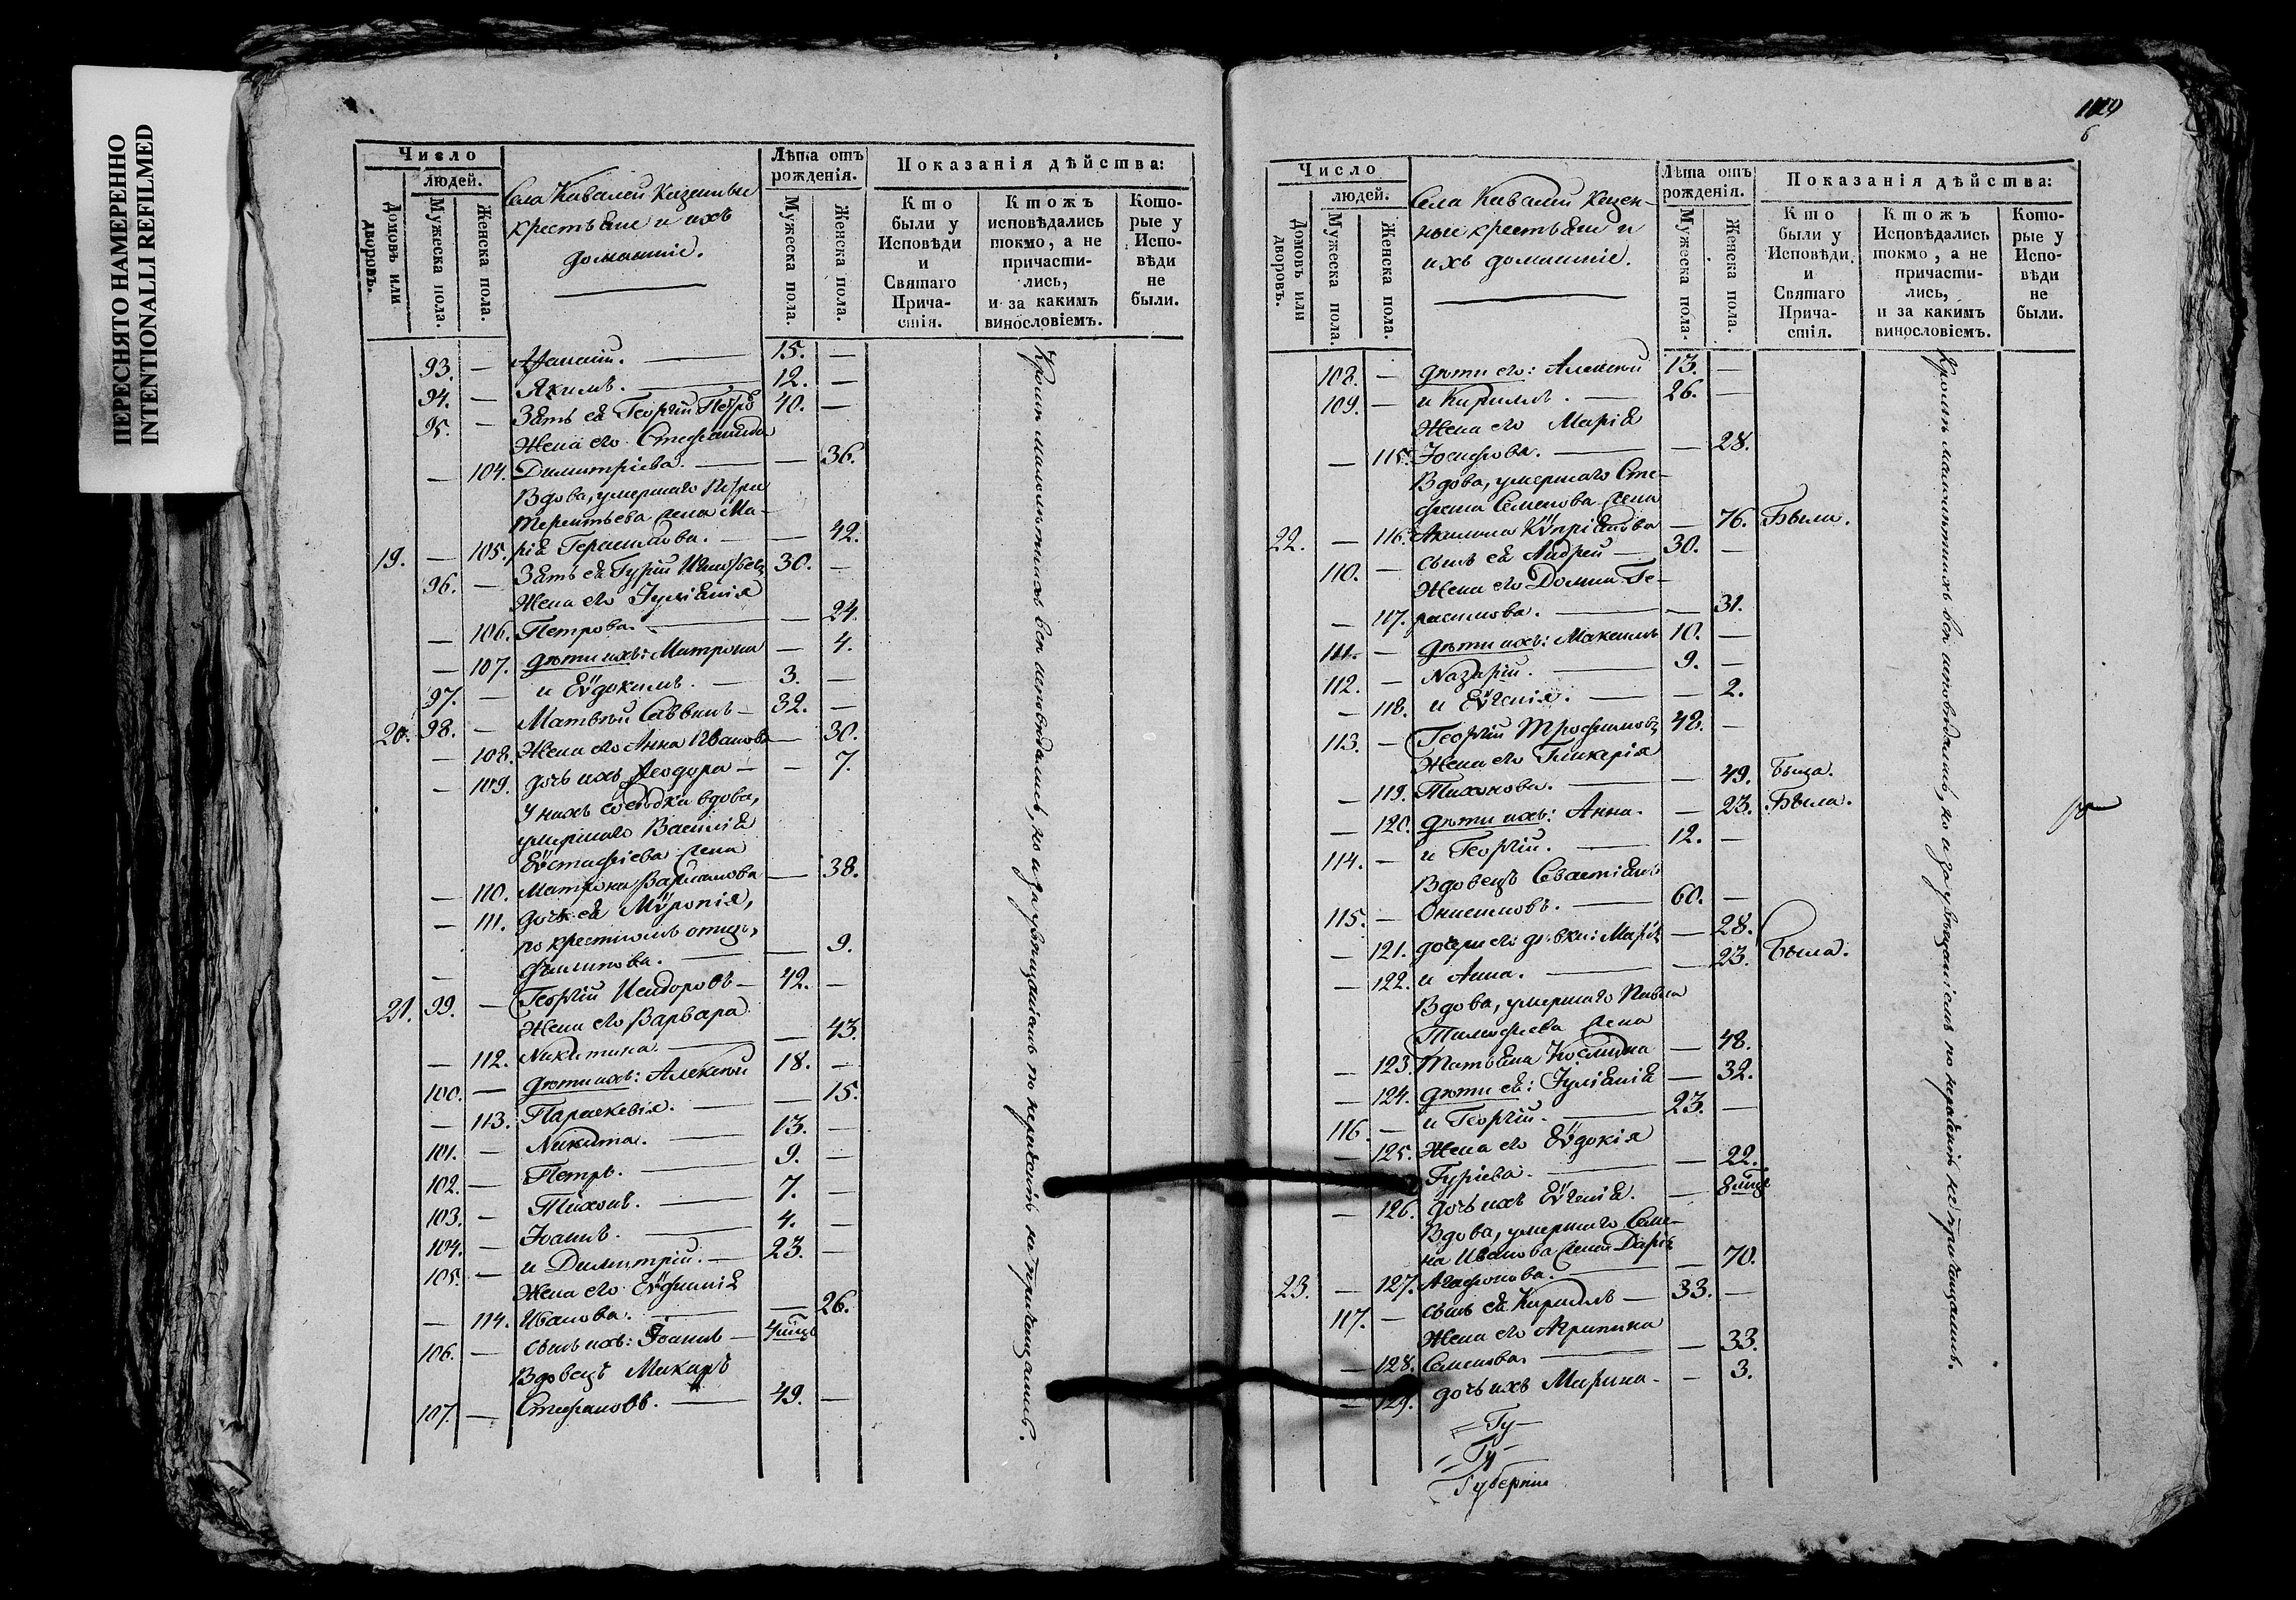 ПЕРЕСНЯТО НАМЕРЕННО
INTENTIONALLI REFILMED
Число
людей.
Домовъ или дворовъ.
Мужеска пола.
Женска пола.
Села Кивалей Казенные
крестьяне и ихъ
домашніе.
Лѣта отъ рожденія.
Мужеска пола.
Женска пола.
Показанія дѣйства:
Кто были у Исповѣди и Святаго Прича-стія.
Ктожъ исповѣдались токмо, а не причасти-лись, и за какимъ винословіемъ.
Кото-рые у Испо-вѣди не были.
93. — 15. —
94. — Якимъ. — 12. —
95. — Зять ея Георгій Петро 40. —
Жена его Стефанида
— 104. Димитріева. — — 36.
Вдова, умершаго Петра
Терентьева жена Ма-
19. — 105. рія Герасимова. — — 42.
96. — Зять ея Гурій 30. —
Жена его Іуліанія
— 106. Петрова. — — 24.
— 107. дѣти ихъ: Матрона — 4.
97. — и Еѵдокимъ. — 3. —
20. 98. — Матвѣй Саввинъ — 32. —
— 108. Жена его Анна Иванова — 30.
— 109. дочь ихъ Ѳеодора — — 7.
У нихъ сосѣдка вдова,
умершаго Василія
Еѵстафіева жена
— 110. Матрона Варламова — 38.
— 111. дочь ея Мѵропія,
по крестномъ отцѣ,
— Филипова. — — 9.
21. 99. — Георгій Исидоровъ — 42. —
Жена его Варвара
— 112. Никитина. — — 43.
100. — дѣти ихъ: Алексѣй 18. —
— 113. Параскевія. — — 15.
101. — Никита. — 13. —
102. — Петръ. — 9. —
103. — Тихонъ. — 7. —
104. — Іоаннъ. — 4. —
105. — и Димитрій. — 23. —
Жена его Еѵфимія
— 114. Иванова. — — 26.
106. — сынъ ихъ: Іоаннъ — 4 мѣц
Вдовецъ Макаръ
107. — Стефановъ. — 49. —
Кромѣ малолѣтнихъ всѣ исповѣдались, но и за увѣщаніемъ по нерадѣнію не причащались.
119
6
Число
людей.
Домовъ или дворовъ.
Мужеска пола.
Женска пола.
Села Кивалей Казен-
ные крестьяне и
ихъ домашніе.
Лѣта отъ рожденія.
Мужеска пола.
Женска пола.
Показанія дѣйства:
Кто были у Исповѣди и Святаго Прича-стія.
Ктожъ Исповѣдались токмо, а не причасти-лись, и за какимъ винословіемъ.
Кото-рые у Испо-вѣди не были.
108. — дѣти его: Алексѣй 13. —
109. — и Кириллъ. — 26. —
Жена его Марія
— 115. Іосифова. — — 28.
Вдова, умершаго Сте-
фана Семенова жена
22. — 116. Акилина Кѵпріанова — 76. Была.
110. — сынъ ея Андрей — 30. —
Жена его Домна Ге-
— 117. расимова. — — 31.
111. — дѣти ихъ: Максимъ 10. —
112. — Назарій. — 9. —
— 118. и Еѵгенія. — — 2.
113. — Георгій Трофимовъ 48. —
Жена его Гликерія
— 119. Тихонова. — — 49. Была.
— 120. дѣти ихъ: Анна. — 23. Была.
114. — и Георгій. — 12. —
Вдовецъ Севастіанъ
115. — Онисимовъ. — 60. —
— 121. дочери его дѣвки: Марія — 28.
— 122. и Анна. — — 23. Была.
Вдова, умершаго Павла
Тимофеева жена
— 123. Татьяна Космина — 48.
— 124. дѣти ея: Іуліанія — 32.
116. — и Георгій. — 23. —
— 125. Жена его Еѵдокія
Гуріева. — — 22.
— 126. дочь ихъ Еѵгенія. — 8 мѣц
Вдова, умершаго Семе-
на Иванова жена Дарія
23. — 127. Агафонова. — — 70.
117. — сынъ ея Кириллъ — 33. —
Жена его Агрипина
— 128. Семенова. — — 33.
— 129. дочь ихъ Марина. — — 3.
Кромѣ малолѣтнихъ всѣ исповѣдались, но и за увѣщаніемъ по нерадѣнію не причащались.
Гу—
Гу—
Губерніи